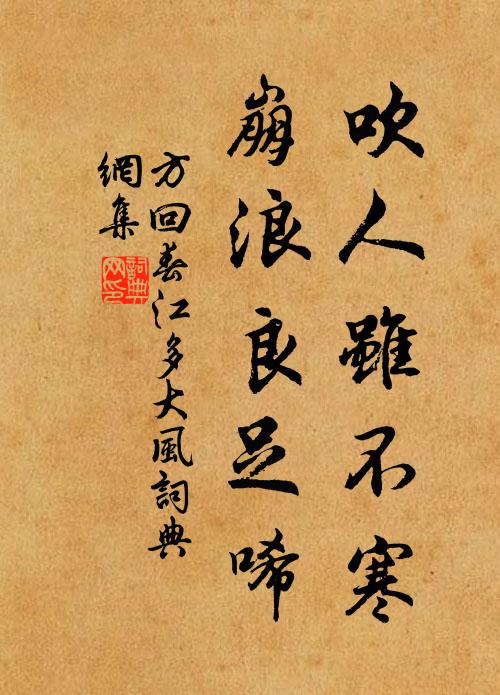 吹人雖不寒
崩浪良足唏
方回春江多大風詞典
網集
詞典
网印